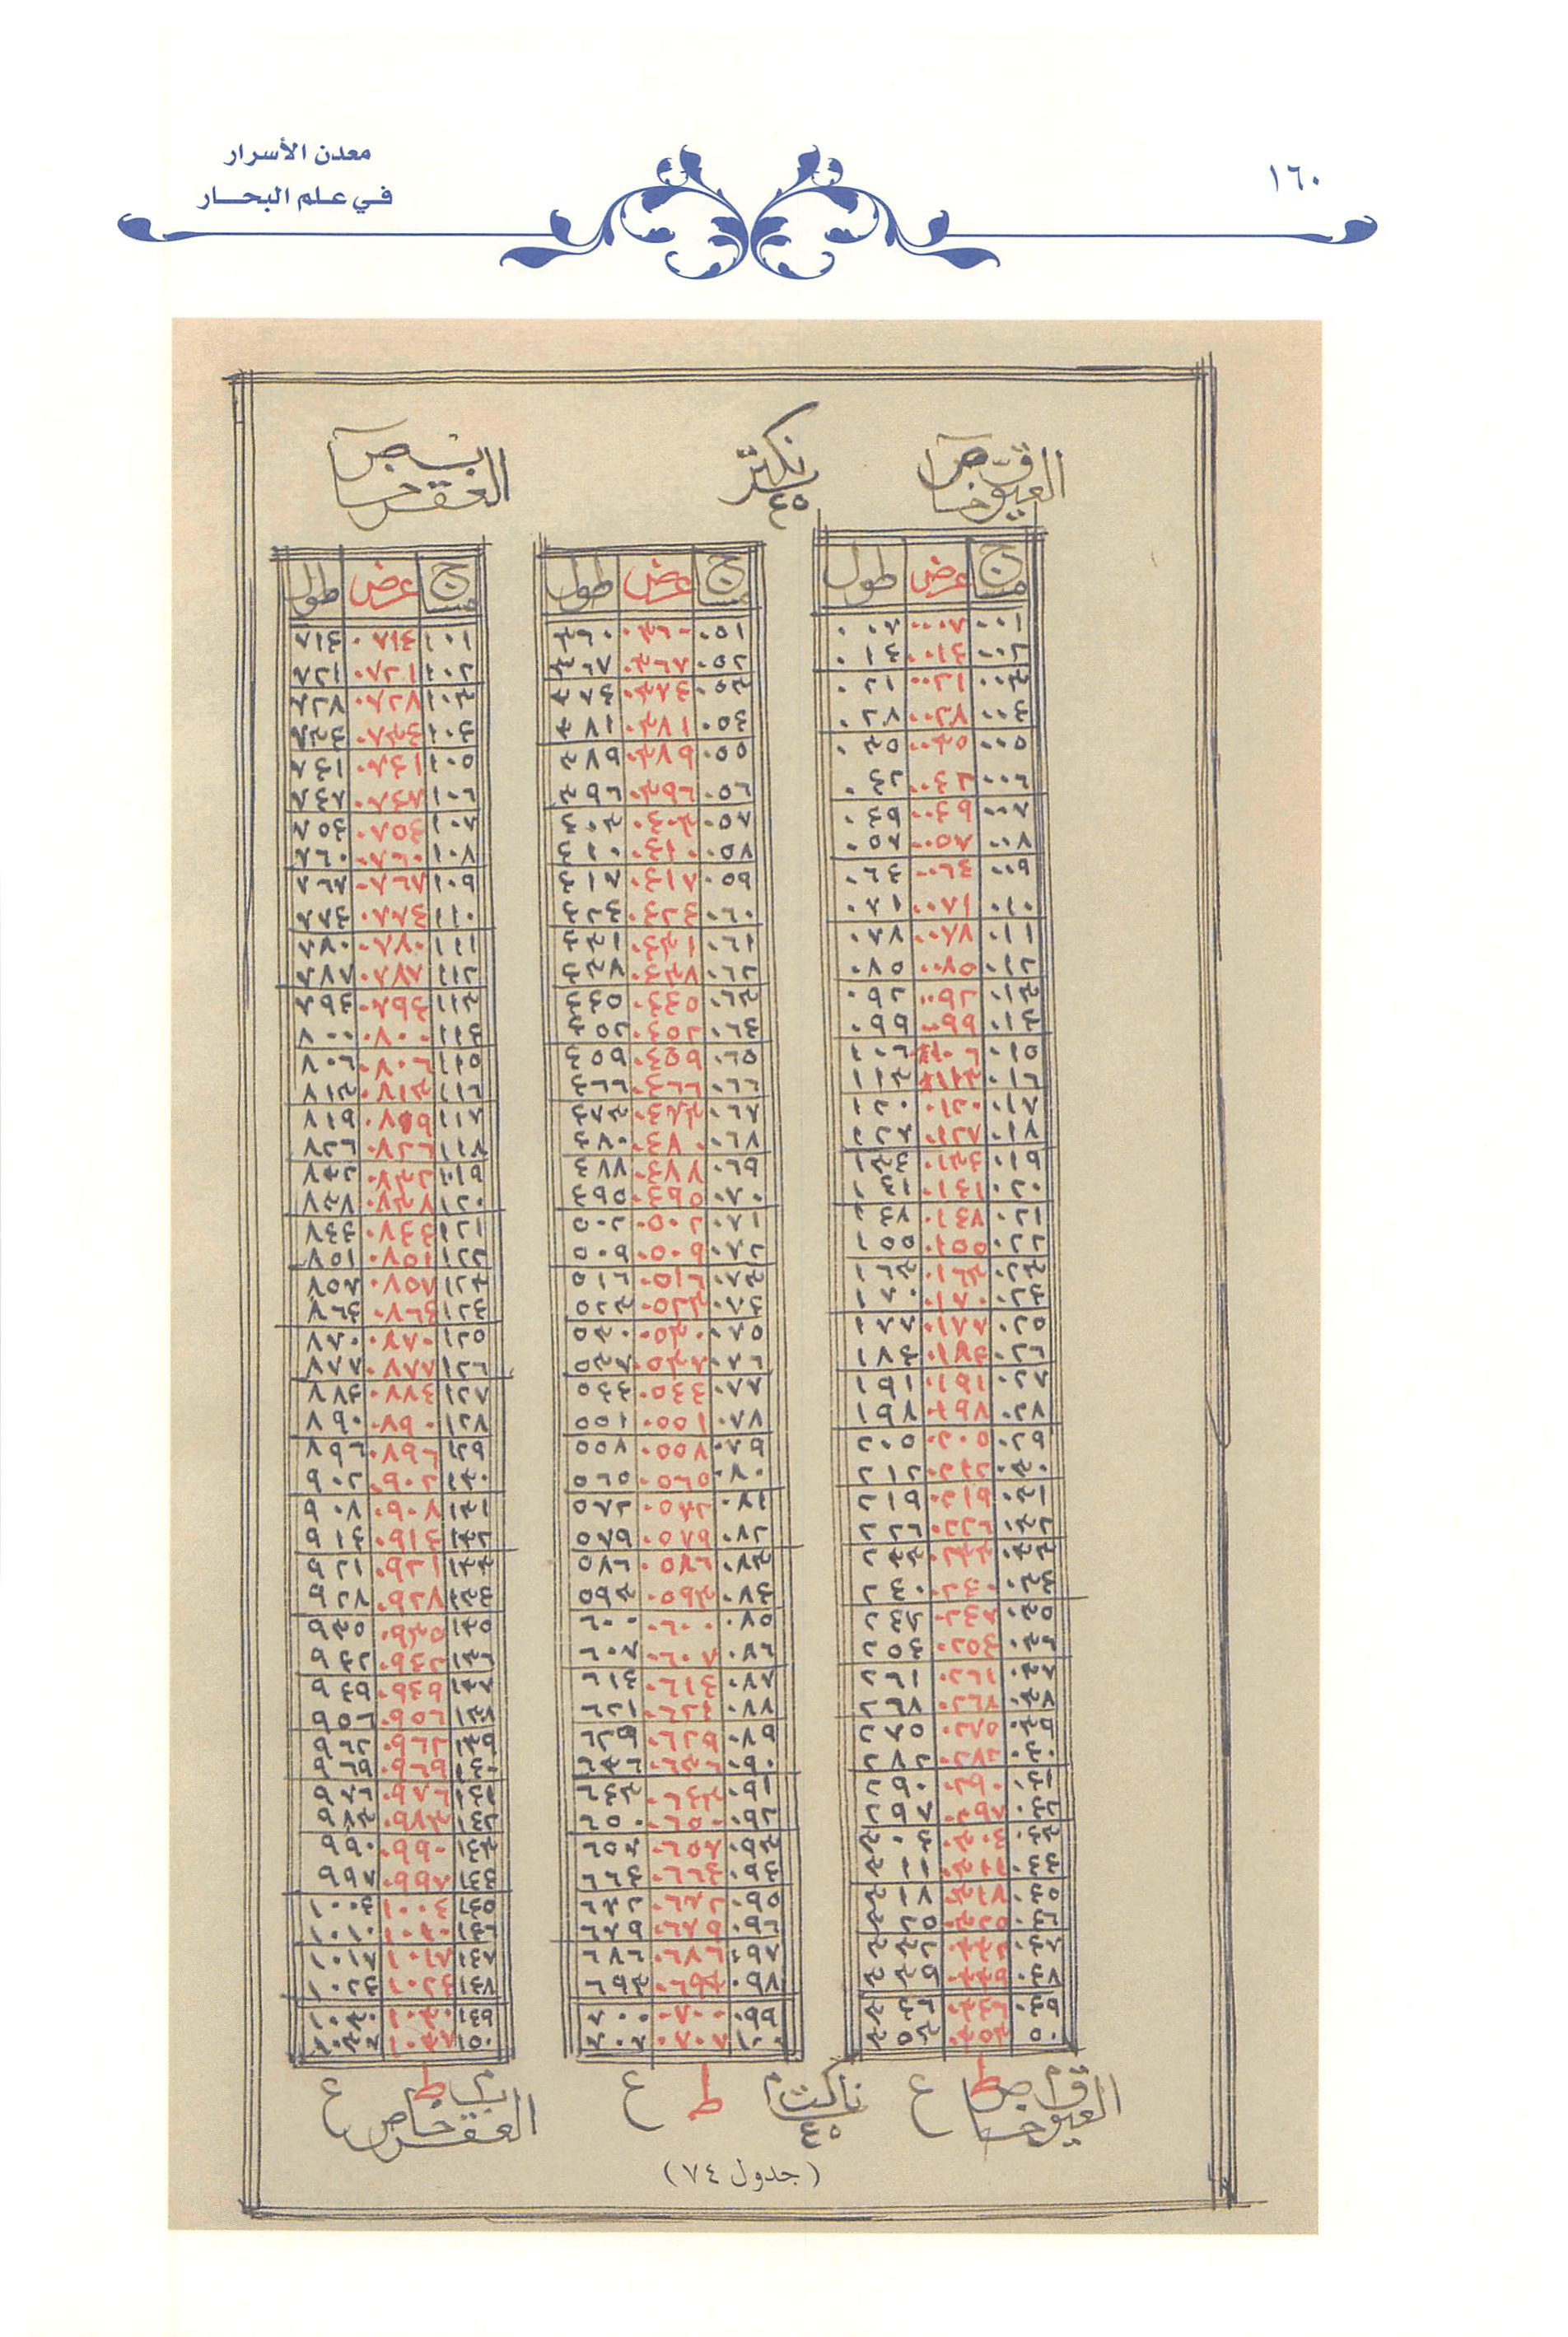 معدن الأسرار
في علم البحار
١٦٠
العيوق
٤٥
العقرب
مساج عرض طول
٠٠١ ٠٠٠٧ ٠٠٧
٠٠٢ ٠٠١٤ ٠١٤
٠٠٣ ٠٠٢١ ٠٢١
٠٠٤ ٠٠٢٨ ٠٢٨
٠٠٥ ٠٠٣٥ ٠٣٥
٠٠٦ ٠٠٤٢ ٠٤٢
٠٠٧ ٠٠٤٩ ٠٤٩
٠٠٨ ٠٠٥٧ ٠٥٧
٠٠٩ ٠٠٦٤ ٠٦٤
٠١٠ ٠٠٧١ ٠٧١
٠١١ ٠٠٧٨ ٠٧٨
٠١٢ ٠٠٨٥ ٠٨٥
٠١٣ ٠٠٩٢ ٠٩٢
٠١٤ ٠٠٩٩ ٠٩٩
٠١٥ ٠١٠٦ ١٠٦
٠١٦ ٠١١٣ ١١٣
٠١٧ ٠١٢٠ ١٢٠
٠١٨ ٠١٢٧ ١٢٧
٠١٩ ٠١٣٤ ١٣٤
٠٢٠ ٠١٤١ ١٤١
٠٢١ ٠١٤٨ ١٤٨
٠٢٢ ٠١٥٥ ١٥٥
٠٢٣ ٠١٦٣ ١٦٣
٠٢٤ ٠١٧٠ ١٧٠
٠٢٥ ٠١٧٧ ١٧٧
٠٢٦ ٠١٨٤ ١٨٤
٠٢٧ ٠١٩١ ١٩١
٠٢٨ ٠١٩٨ ١٩٨
٠٢٩ ٠٢٠٥ ٢٠٥
٠٣٠ ٠٢١٢ ٢١٢
٠٣١ ٠٢١٩ ٢١٩
٠٣٢ ٠٢٢٦ ٢٢٦
٠٣٣ ٠٢٣٣ ٢٣٣
٠٣٤ ٠٢٤٠ ٢٤٠
٠٣٥ ٠٢٤٧ ٢٤٧
٠٣٦ ٠٢٥٤ ٢٥٤
٠٣٧ ٠٢٦١ ٢٦١
٠٣٨ ٠٢٦٨ ٢٦٨
٠٣٩ ٠٢٧٥ ٢٧٥
٠٤٠ ٠٢٨٢ ٢٨٢
٠٤١ ٠٢٩٠ ٢٩٠
٠٤٢ ٠٢٩٧ ٢٩٧
٠٤٣ ٠٣٠٤ ٣٠٤
٠٤٤ ٠٣١١ ٣١١
٠٤٥ ٠٣١٨ ٣١٨
٠٤٦ ٠٣٢٥ ٣٢٥
٠٤٧ ٠٣٣٢ ٣٣٢
٠٤٨ ٠٣٣٩ ٣٣٩
٠٤٩ ٠٣٤٦ ٣٤٦
٠٥٠ ٠٣٥٣ ٣٥٣
مساج عرض طول
٠٥١ ٠٣٦٠ ٣٦٠
٠٥٢ ٠٣٦٧ ٣٦٧
٠٥٣ ٠٣٧٤ ٣٧٤
٠٥٤ ٠٣٨١ ٣٨١
٠٥٥ ٠٣٨٩ ٣٨٩
٠٥٦ ٠٣٩٦ ٣٩٦
٠٥٧ ٠٤٠٣ ٤٠٣
٠٥٨ ٠٤١٠ ٤١٠
٠٥٩ ٠٤١٧ ٤١٧
٠٦٠ ٠٤٢٤ ٤٢٤
٠٦١ ٠٤٣١ ٤٣١
٠٦٢ ٠٤٣٨ ٤٣٨
٠٦٣ ٠٤٤٥ ٤٤٥
٠٦٤ ٠٤٥٢ ٤٥٢
٠٦٥ ٠٤٥٩ ٤٥٩
٠٦٦ ٠٤٦٦ ٤٦٦
٠٦٧ ٠٤٧٣ ٤٧٣
٠٦٨ ٠٤٨٠ ٤٨٠
٠٦٩ ٠٤٨٨ ٤٨٨
٠٧٠ ٠٤٩٥ ٤٩٥
٠٧١ ٠٥٠٢ ٥٠٢
٠٧٢ ٠٥٠٩ ٥٠٩
٠٧٣ ٠٥١٦ ٥١٦
٠٧٤ ٠٥٢٣ ٥٢٣
٠٧٥ ٠٥٣٠ ٥٣٠
٠٧٦ ٠٥٣٧ ٥٣٧
٠٧٧ ٠٥٤٤ ٥٤٤
٠٧٨ ٠٥٥١ ٥٥١
٠٧٩ ٠٥٥٨ ٥٥٨
٠٨٠ ٠٥٦٥ ٥٦٥
٠٨١ ٠٥٧٢ ٥٧٢
٠٨٢ ٠٥٧٩ ٥٧٩
٠٨٣ ٠٥٨٦ ٥٨٦
٠٨٤ ٠٥٩٣ ٥٩٣
٠٨٥ ٠٦٠٠ ٦٠٠
٠٨٦ ٠٦٠٧ ٦٠٧
٠٨٧ ٠٦١٤ ٦١٤
٠٨٨ ٠٦٢١ ٦٢١
٠٨٩ ٠٦٢٩ ٦٢٩
٠٩٠ ٠٦٣٦ ٦٣٦
٠٩١ ٠٦٤٣ ٦٤٣
٠٩٢ ٠٦٥٠ ٦٥٠
٠٩٣ ٠٦٥٧ ٦٥٧
٠٩٤ ٠٦٦٤ ٦٦٤
٠٩٥ ٠٦٧٢ ٦٧٢
٠٩٦ ٠٦٧٩ ٦٧٩
٠٩٧ ٠٦٨٦ ٦٨٦
٠٩٨ ٠٦٩٣ ٦٩٣
٠٩٩ ٠٧٠٠ ٧٠٠
١٠٠ ٠٧٠٧ ٧٠٧
مساج عرض طول
١٠١ ٠٧١٤ ٧١٤
١٠٢ ٠٧٢١ ٧٢١
١٠٣ ٠٧٢٨ ٧٢٨
١٠٤ ٠٧٣٤ ٧٣٤
١٠٥ ٠٧٤١ ٧٤١
١٠٦ ٠٧٤٧ ٧٤٧
١٠٧ ٠٧٥٤ ٧٥٤
١٠٨ ٠٧٦٠ ٧٦٠
١٠٩ ٠٧٦٧ ٧٦٧
١١٠ ٠٧٧٤ ٧٧٤
١١١ ٠٧٨٠ ٧٨٠
١١٢ ٠٧٨٧ ٧٨٧
١١٣ ٠٧٩٤ ٧٩٤
١١٤ ٠٨٠٠ ٨٠٠
١١٥ ٠٨٠٦ ٨٠٦
١١٦ ٠٨١٣ ٨١٣
١١٧ ٠٨١٩ ٨١٩
١١٨ ٠٨٢٦ ٨٢٦
١١٩ ٠٨٣٢ ٨٣٢
١٢٠ ٠٨٣٧ ٨٣٧
١٢١ ٠٨٤٤ ٨٤٤
١٢٢ ٠٨٥١ ٨٥١
١٢٣ ٠٨٥٧ ٨٥٧
١٢٤ ٠٨٦٤ ٨٦٤
١٢٥ ٠٨٧٠ ٨٧٠
١٢٦ ٠٨٧٧ ٨٧٧
١٢٧ ٠٨٨٤ ٨٨٤
١٢٨ ٠٨٩٠ ٨٩٠
١٢٩ ٠٨٩٦ ٨٩٦
١٣٠ ٠٩٠٢ ٩٠٢
١٣١ ٠٩٠٨ ٩٠٨
١٣٢ ٠٩١٤ ٩١٤
١٣٣ ٠٩٢١ ٩٢١
١٣٤ ٠٩٢٨ ٩٢٨
١٣٥ ٠٩٣٥ ٩٣٥
١٣٦ ٠٩٤٢ ٩٤٢
١٣٧ ٠٩٤٩ ٩٤٩
١٣٨ ٠٩٥٦ ٩٥٦
١٣٩ ٠٩٦٢ ٩٦٢
١٤٠ ٠٩٦٩ ٩٦٩
١٤١ ٠٩٧٦ ٩٧٦
١٤٢ ٠٩٨٣ ٩٨٣
١٤٣ ٠٩٩٠ ٩٩٠
١٤٤ ٠٩٩٧ ٩٩٧
١٤٥ ١٠٠٤ ١٠٠٤
١٤٦ ١٠١٠ ١٠١٠
١٤٧ ١٠١٨ ١٠١٨
١٤٨ ١٠٢٤ ١٠٢٤
١٤٩ ١٠٣٠ ١٠٣٠
١٥٠ ١٠٣٧ ١٠٣٧
العيوق ط ع
٤٥ ط ع
العقرب ط ع
(جدول ٧٤)